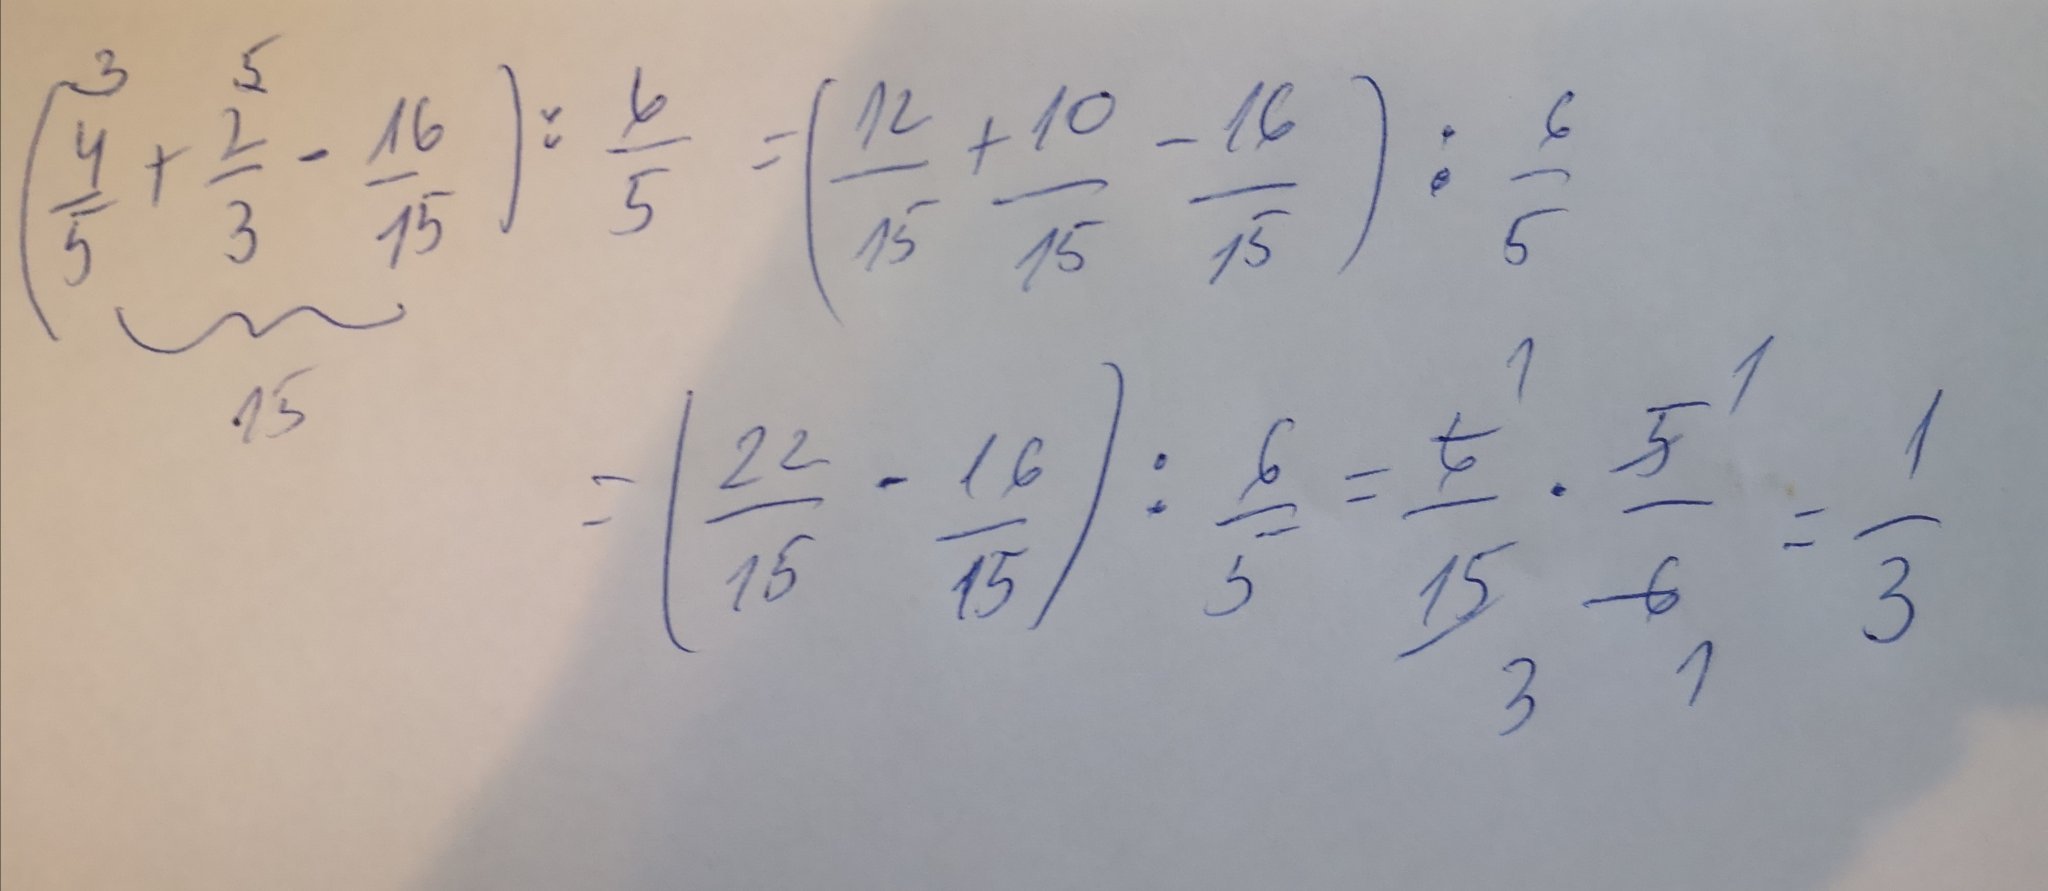 (4/5 ³ + 2/3 ⁵ - 16/15) : 6/5 = (12/15 + 10/15 - 16/15) : 6/5
15
= (22/15 - 16/15) : 6/5 = 6/15 ¹₃ · 5/6 ¹₁ = 1/3